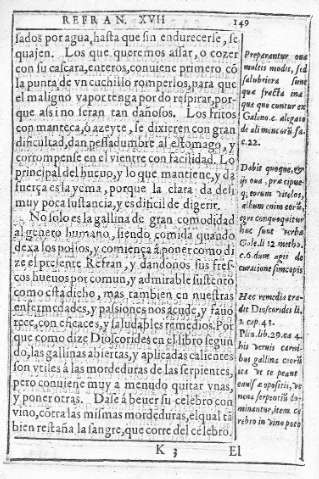 REFRAN. XVII 149
sados por agua, hasta que sin endurecerse, se
quajen. Los que queremos assar, o cozer
con su cascara, enteros, conuiene primero cõ
la punta de vn cuchillo romperlos, para que
el maligno vapor tenga por do respirar, por-
que assi no seran tan dañosos. Los fritos
con manteca, ò azeyte, se dixieren con gran
dificultad, dan pessadumbre al estomago, y
corrompense en el vientre con facilidad. Lo
principal del hueuo, y lo que mantiene, y da
fuerça es la yema, porque la clara da de si
muy poca sustancia, y es dificil de digerir.
No solo es la gallina de gran comodidad
al genero humano, siendo comida quando
dexa los pollos, y comiença à poner como di
ze el presente Refran, y dandonos sus fres-
cos hueuos por comun, y admirable sustento
como està dicho, mas tambien en nuestras
enfermedades, y passiones nos acude, y fauo
rece, con eficaces, y saludables remedios. Por
que como dize Dioscorides en el libro segun
do, las gallinas abiertas, y aplicadas calientes
son vtiles à las mordeduras de las serpientes,
pero conuiene muy a menudo quitar vnas,
y poner otras. Dase à beuer su celebro con
vino, cõtra las mismas mordeduras, el qual tã
bien restaña la sangre, que corre del celebro.
K 3 El
Preparantur oua
multis modis, sed
salubriora sunt
quæ frecta ma
gis quo continetur ex
Galino. c. alegato
de alimentorũ fa.
c. 22.
Dabis quoque, &
ijs oua, præcipue
eorum vitelos,
album enim
egre conquoquitur
hæc sunt verba
Gale. li 12 metho.
c. 6 dum agit de
curatione sincopis
Hec remedia tra-
dit Dioscorides li.
2. cap. 41.
Plin. lib. 29. ca 4.
his verbis carni-
bus gallina
ita vt te peant
auulsæ apositis, ve
nena serpentiũ do
minantur, item ce
rebro in vino poto